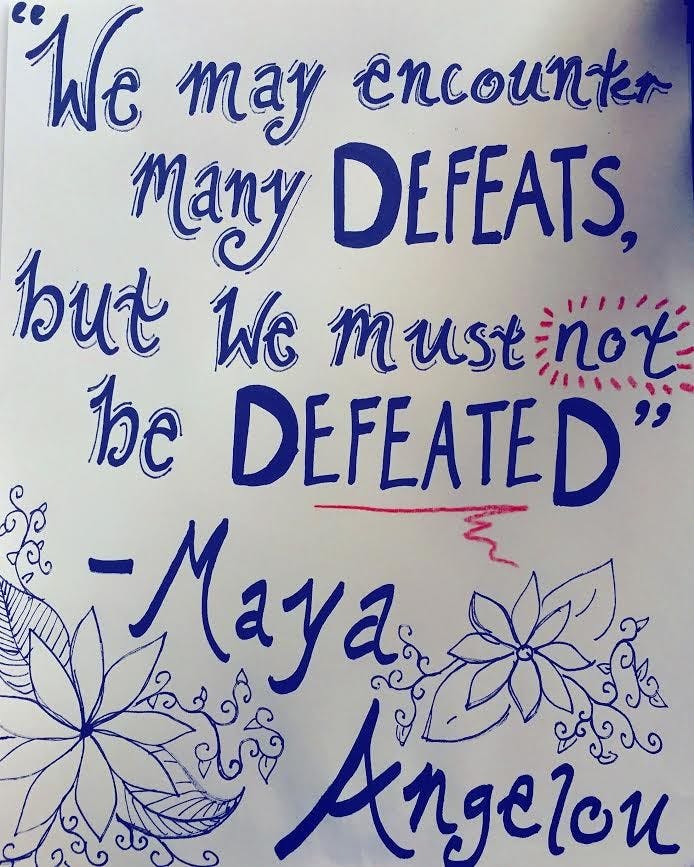 “We may encounter
many DEFEATS,
but We must not
be DEFEATED”
-Maya
Angelou